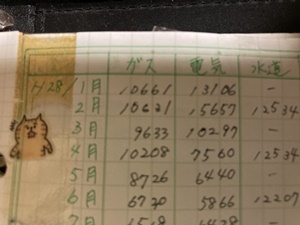 ガス 電気 水道
H28/1月 10661 13106 -
2月 10631 15657 12534
3月 9633 10297 -
4月 10208 7560 12534
5月 8726 6440 -
6月 6720 5866 12207
7月